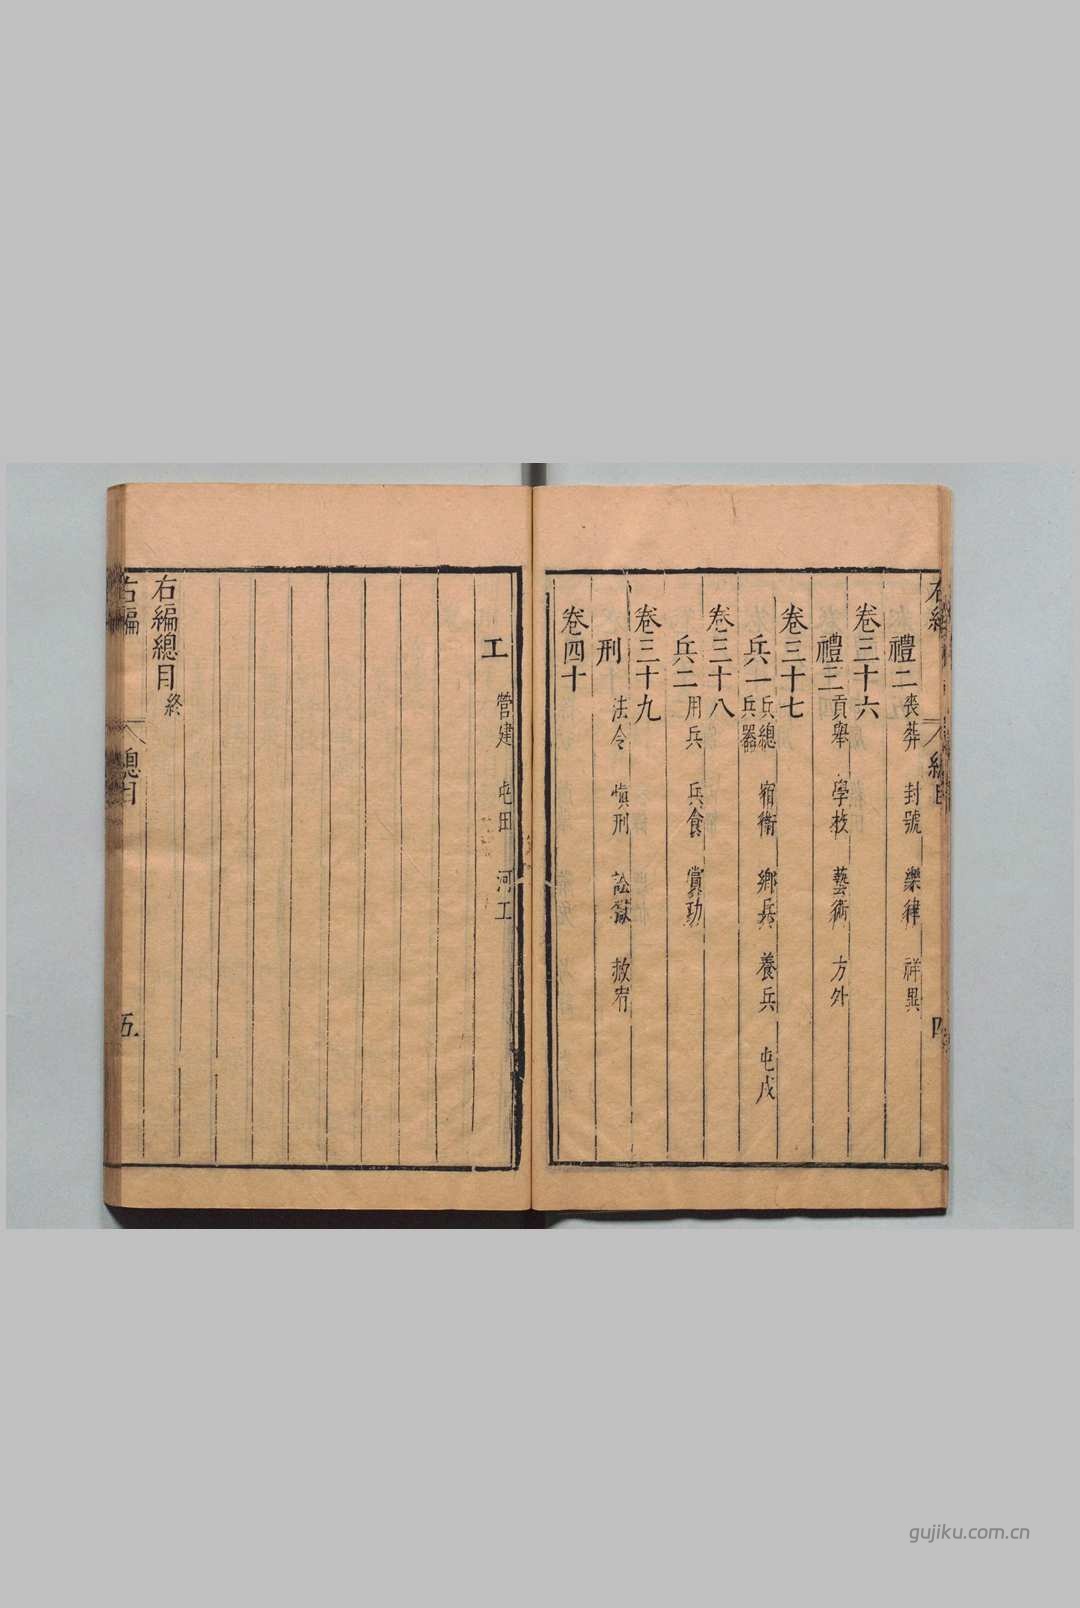 禮二 喪葬 封號 樂律 祥異
卷三十六
禮三 貢舉 學校 藝術 方外
卷三十七
兵一 兵總 宿衛 鄉兵 養兵 屯戍
兵器
卷三十八
兵二 用兵 兵食 賞功
卷三十九
刑 法令 愼刑 訟獄 赦宥
卷四十
工 營建 屯田 河工
右編總目 終
右編 總目 四
右編 總目 五
gujiku.com.cn